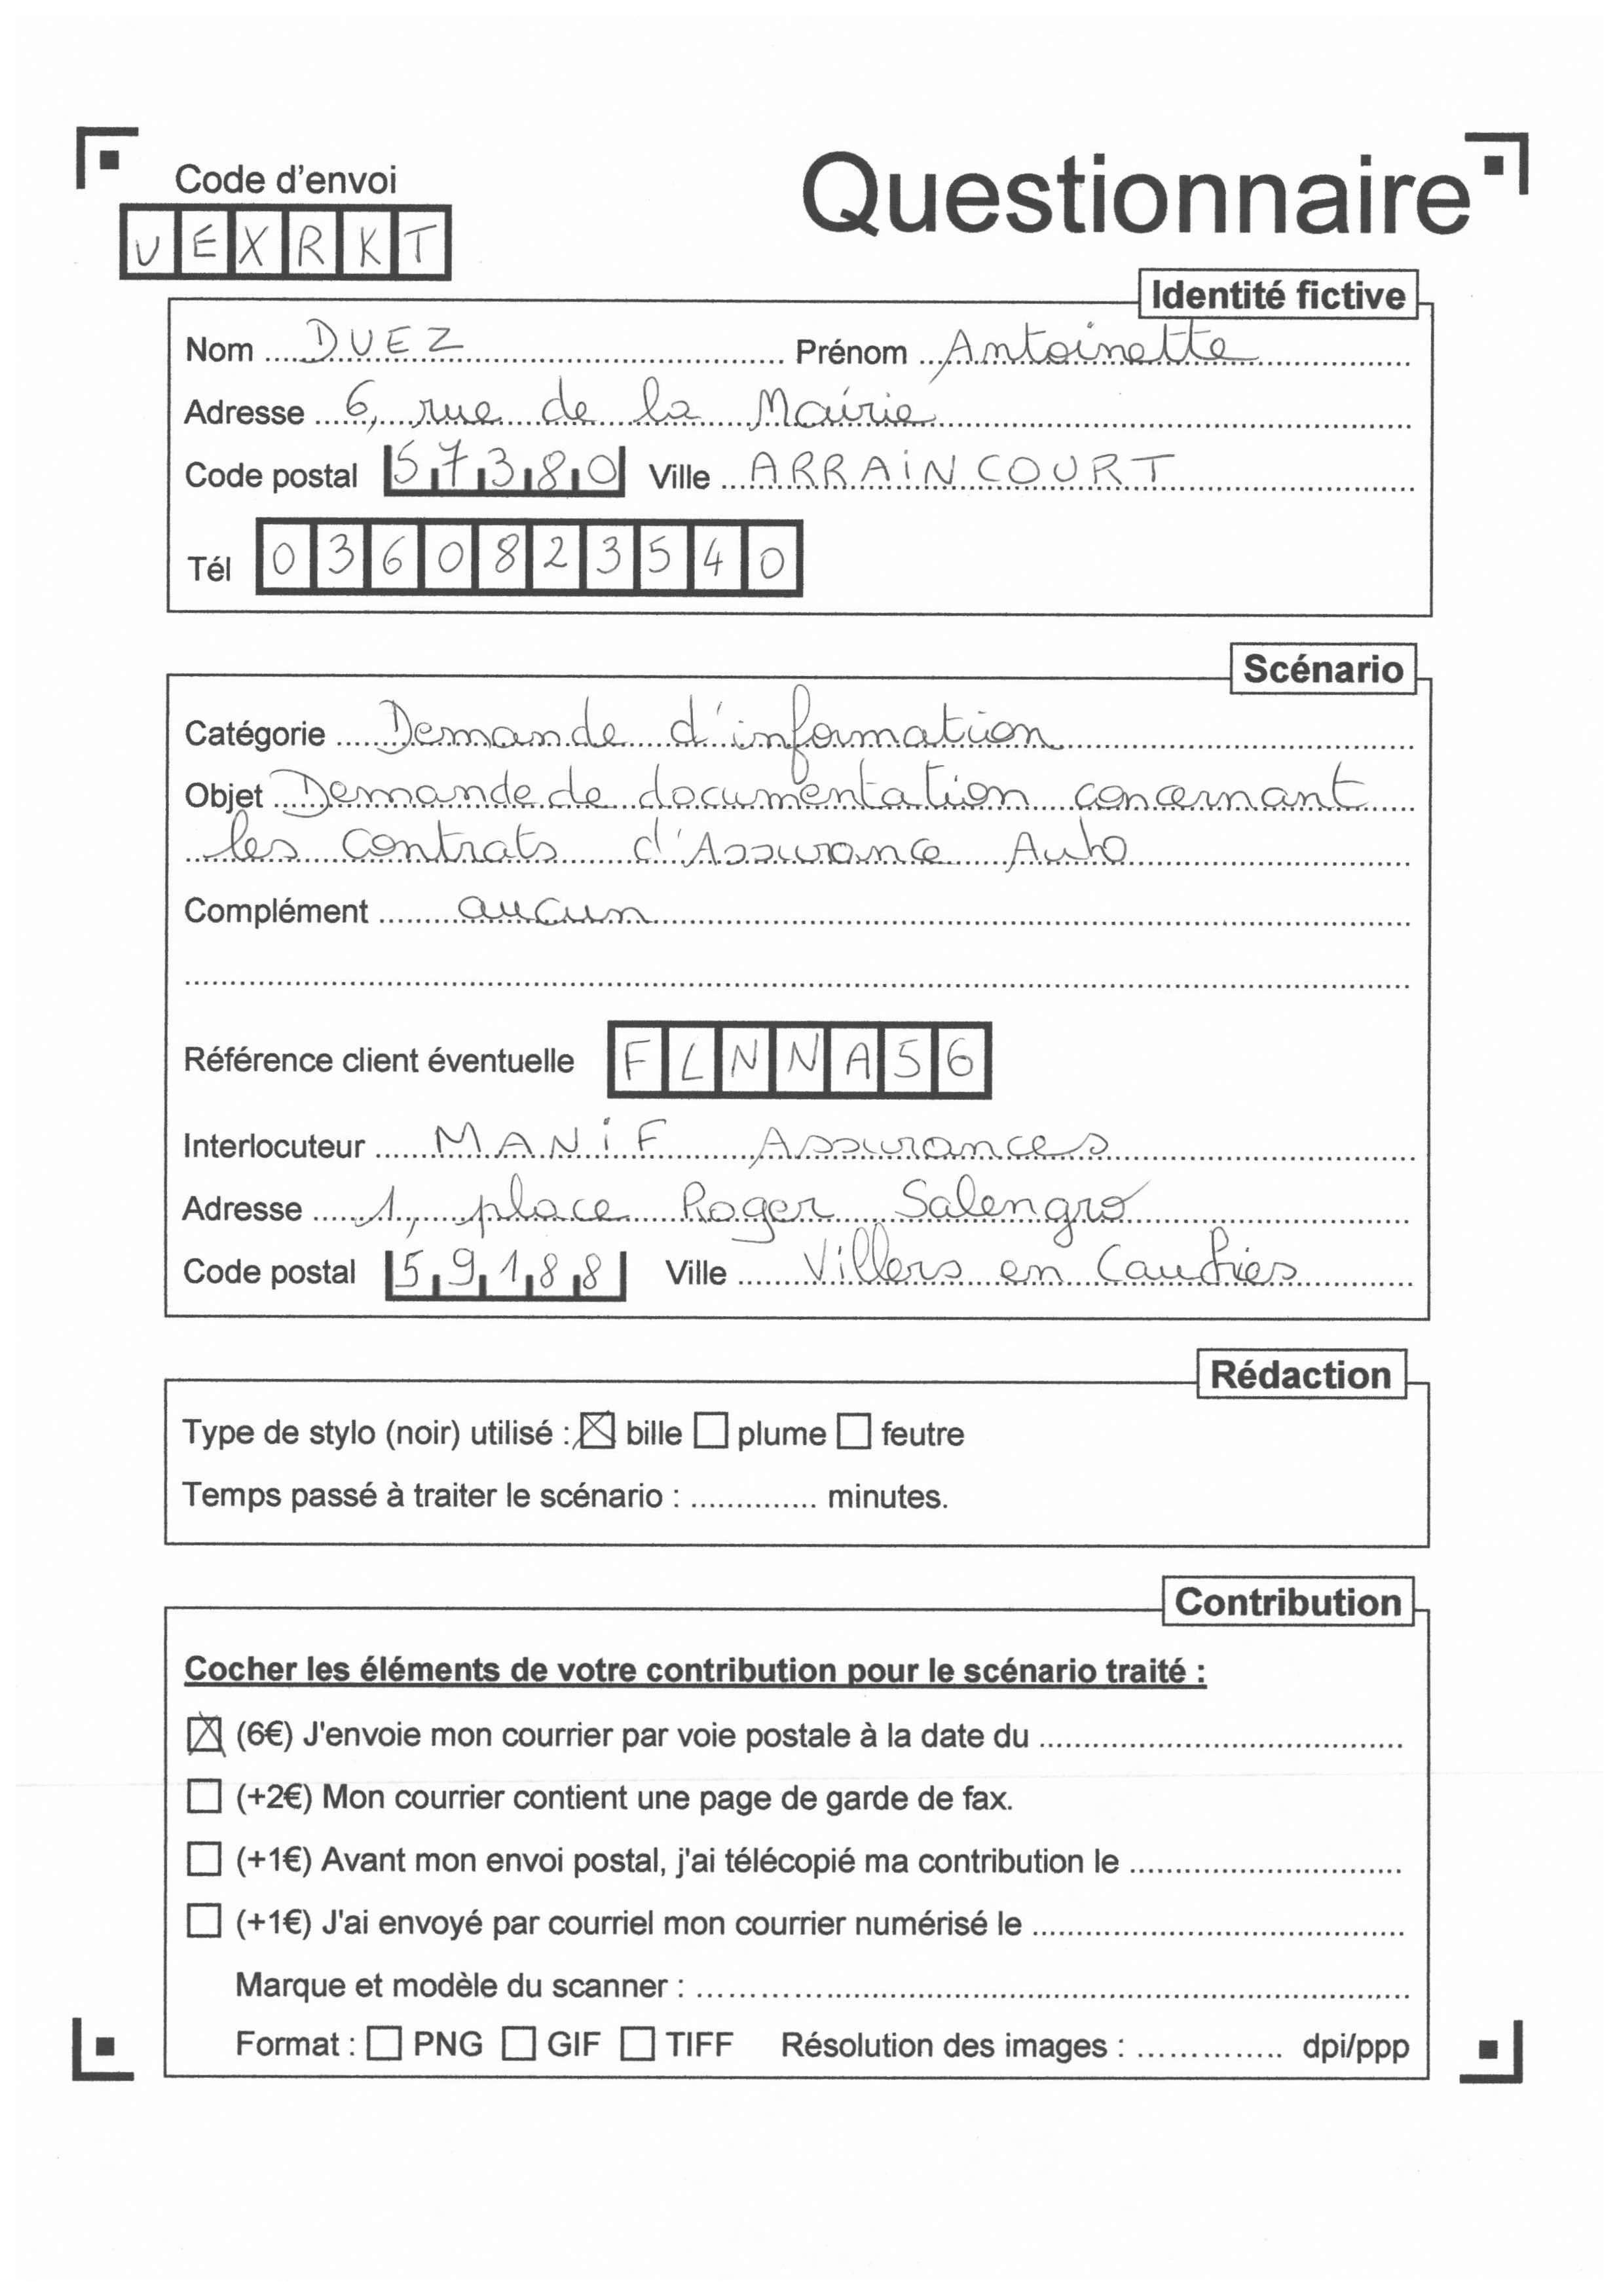 Code d'envoi
Questionnaire
VEXRKT
Identité fictive
Nom DUEZ Prénom Antoinette
Adresse 6, rue de la Mairie
Code postal 57380 Ville ARRAINCOURT
Tél 0360823540
Scénario
Catégorie Demande d'information
Objet Demande de documentation concernant
les contrats d'Assurance Auto
Complément aucun
Référence client éventuelle FLNNA56
Interlocuteur MANIF Assurances
Adresse 1, place Roger Salengro
Code postal 59188 Ville Villers en Cauchies
Rédaction
Type de stylo (noir) utilisé : bille plume feutre
Temps passé à traiter le scénario : .............. minutes.
Contribution
Cocher les éléments de votre contribution pour le scénario traité :
(6€) J'envoie mon courrier par voie postale à la date du
(+2€) Mon courrier contient une page de garde de fax.
(+1€) Avant mon envoi postal, j'ai télécopié ma contribution le
(+1€) J'ai envoyé par courriel mon courrier numérisé le
Marque et modèle du scanner :
Format : PNG GIF TIFF Résolution des images : .............. dpi/ppp